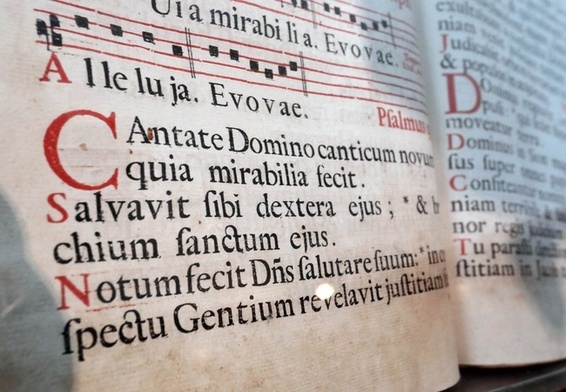 Ui a mirabi li a. Evovae.
A lle lu ja. Evovae.
Pſalmus
CAntate Domino canticum novum
quia mirabilia fecit.
Salvavit ſibi dextera ejus ; * & br
chium ſanctum ejus.
Notum fecit Dñs ſalutare ſuum: * in co
ſpectu Gentium revelavit juſtitiam ſ
niam
Judicabit
& popu
D
moveatur terra.
Dominus in Sion
ſus ſuper omnes
Confiteantur
niam terribile
nor regis judicium
Tu paraſti
ſtitiam in Jacob